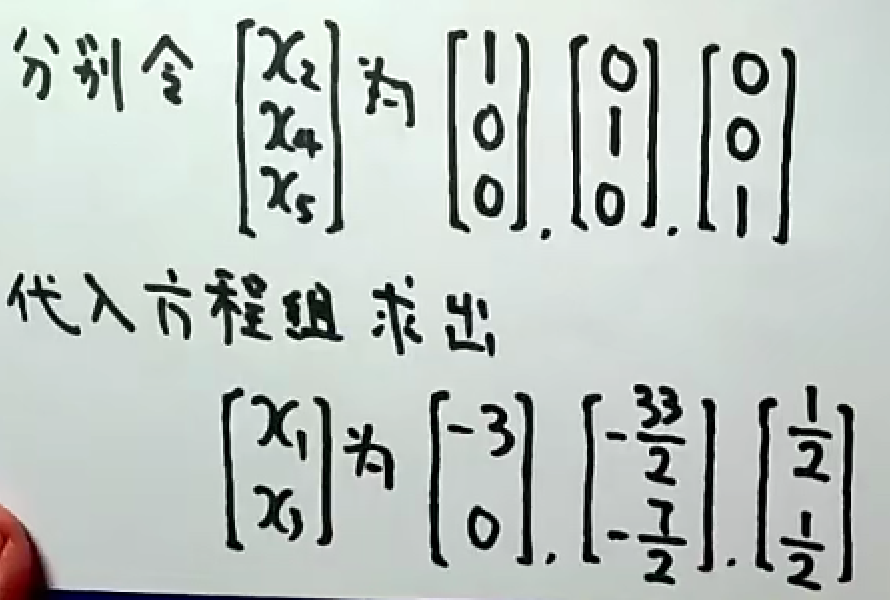 分别令 [x₂ x₄ x₅] 为 [1 0 0], [0 1 0], [0 0 1]
代入方程组求出
[x₁ x₃] 为 [-3 0], [-33/2 -7/2], [1/2 1/2]